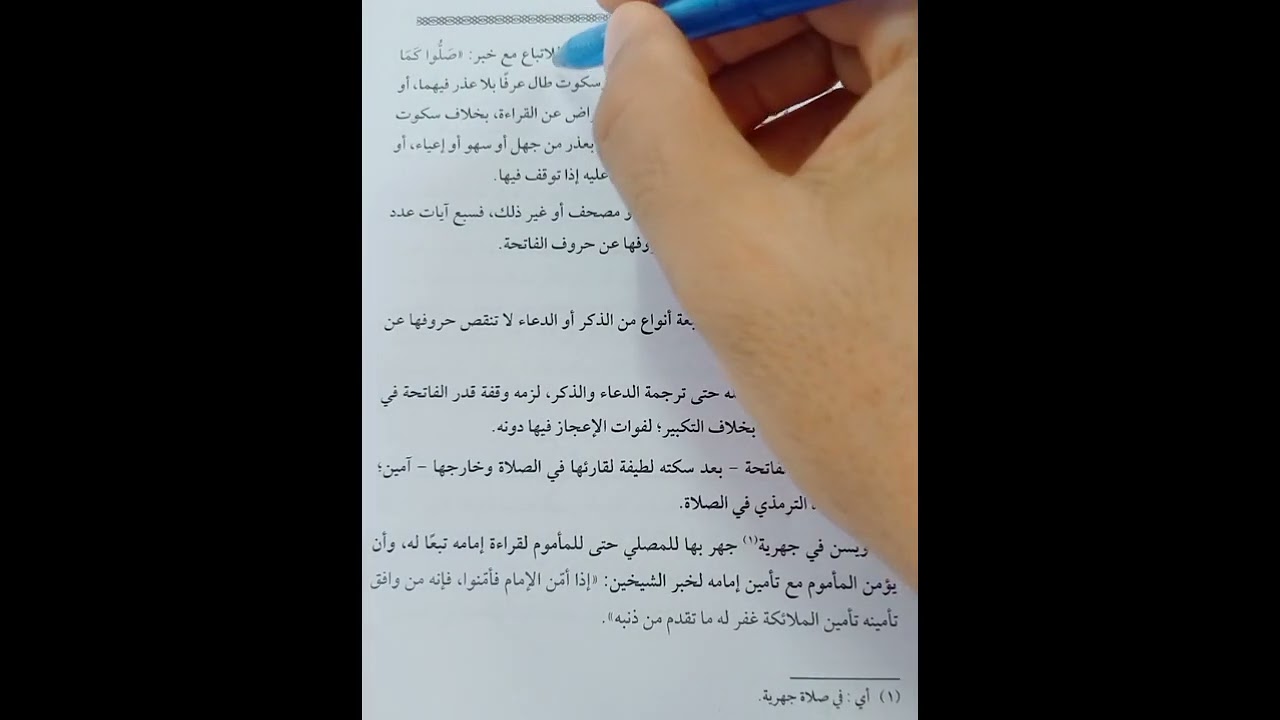 للاتباع مع خبر: «صَلُّوا كَمَا
سكوت طال عرفًا بلا عذر فيهما، أو
عن القراءة، بخلاف سكوت
بعذر من جهل أو سهو أو إعياء، أو
عليه إذا توقف فيها.
مصحف أو غير ذلك، فسبع آيات عدد
عن حروف الفاتحة.
أنواع من الذكر أو الدعاء لا تنقص حروفها عن
حتى ترجمة الدعاء والذكر، لزمه وقفة قدر الفاتحة في
بخلاف التكبير؛ لفوات الإعجاز فيها دونه.
– بعد سكته لطيفة لقارئها في الصلاة وخارجها – آمين؛
الترمذي في الصلاة.
ويسن في جهرية(١) جهر بها للمصلي حتى للمأموم لقراءة إمامه تبعًا له، وأن
يؤمن المأموم مع تأمين إمامه لخبر الشيخين: «إذا أمّن الإمام فأمّنوا، فإنه من وافق
تأمينه تأمين الملائكة غفر له ما تقدم من ذنبه».
(١) أي : في صلاة جهرية.